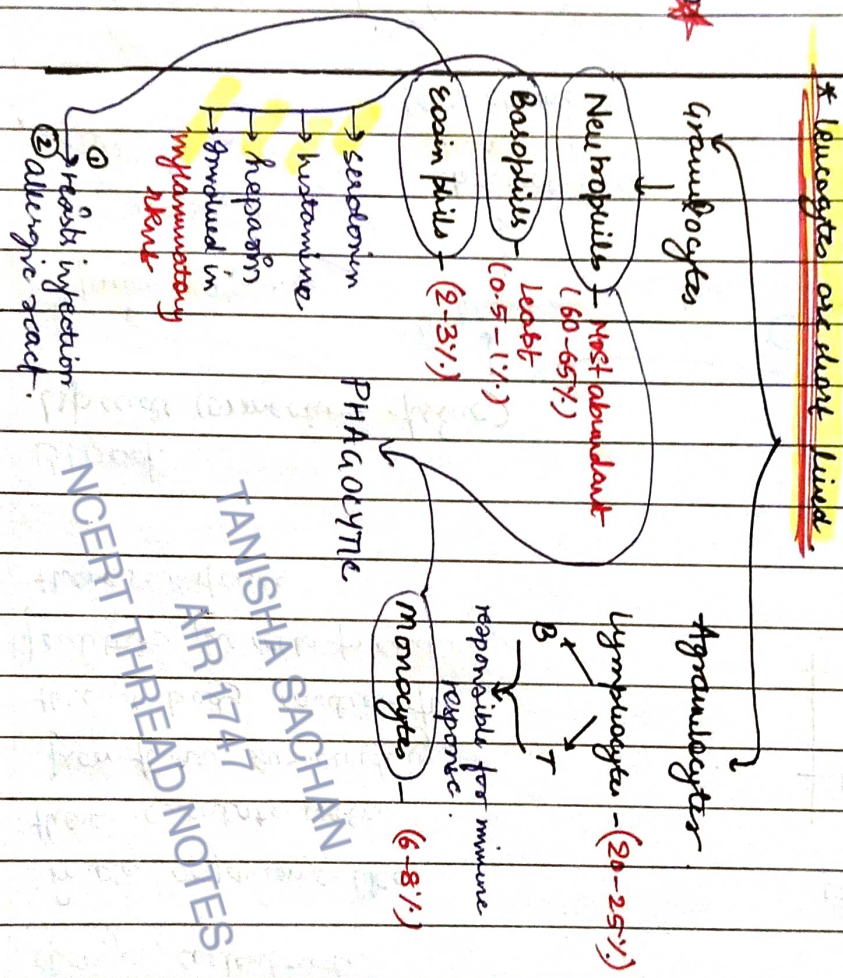 * leucocytes are short lived.
Granulocytes
Agranulocytes
Neutrophils - Most abundant
(60-65%)
Basophils - Least
(0.5-1%)
Eosinophills - (2-3%)
→ serotonin
→ histamine
→ heparin
→ involved in
inflammatory
rkns
① → resists infection
② allergic react.
PHAGOCYTIC
Lymphocytes - (20-25%)
B T
responsible for immune
response.
Monocytes - (6-8%)
TANISHA SACHAN
AIR 1747
NCERT THREAD NOTES